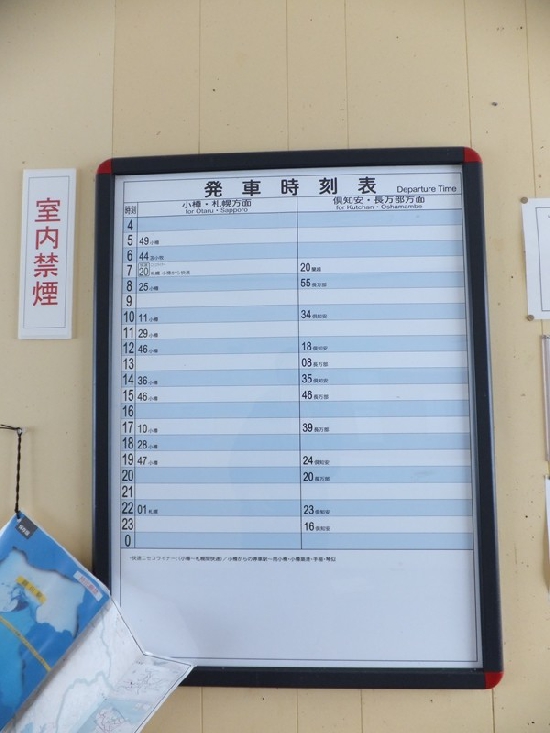 発車時刻表 Departure Time
小樽・札幌方面 倶知安・長万部方面
for Otaru・Sapporo for Kutchan・Oshamambe
時刻
4
5 49 小樽
6 44 苫小牧
7 20 20
8 25 小樽 55 長万部
9
10 11 小樽 34 倶知安
11 29 小樽
12 46 小樽 18 倶知安
13 08 長万部
14 36 小樽 35 倶知安
15 46 小樽 48 長万部
16
17 10 小樽 39 長万部
18 28 小樽
19 47 小樽 24 倶知安
20 20 長万部
21
22 01 札幌 23 倶知安
23 16 倶知安
0
室内禁煙